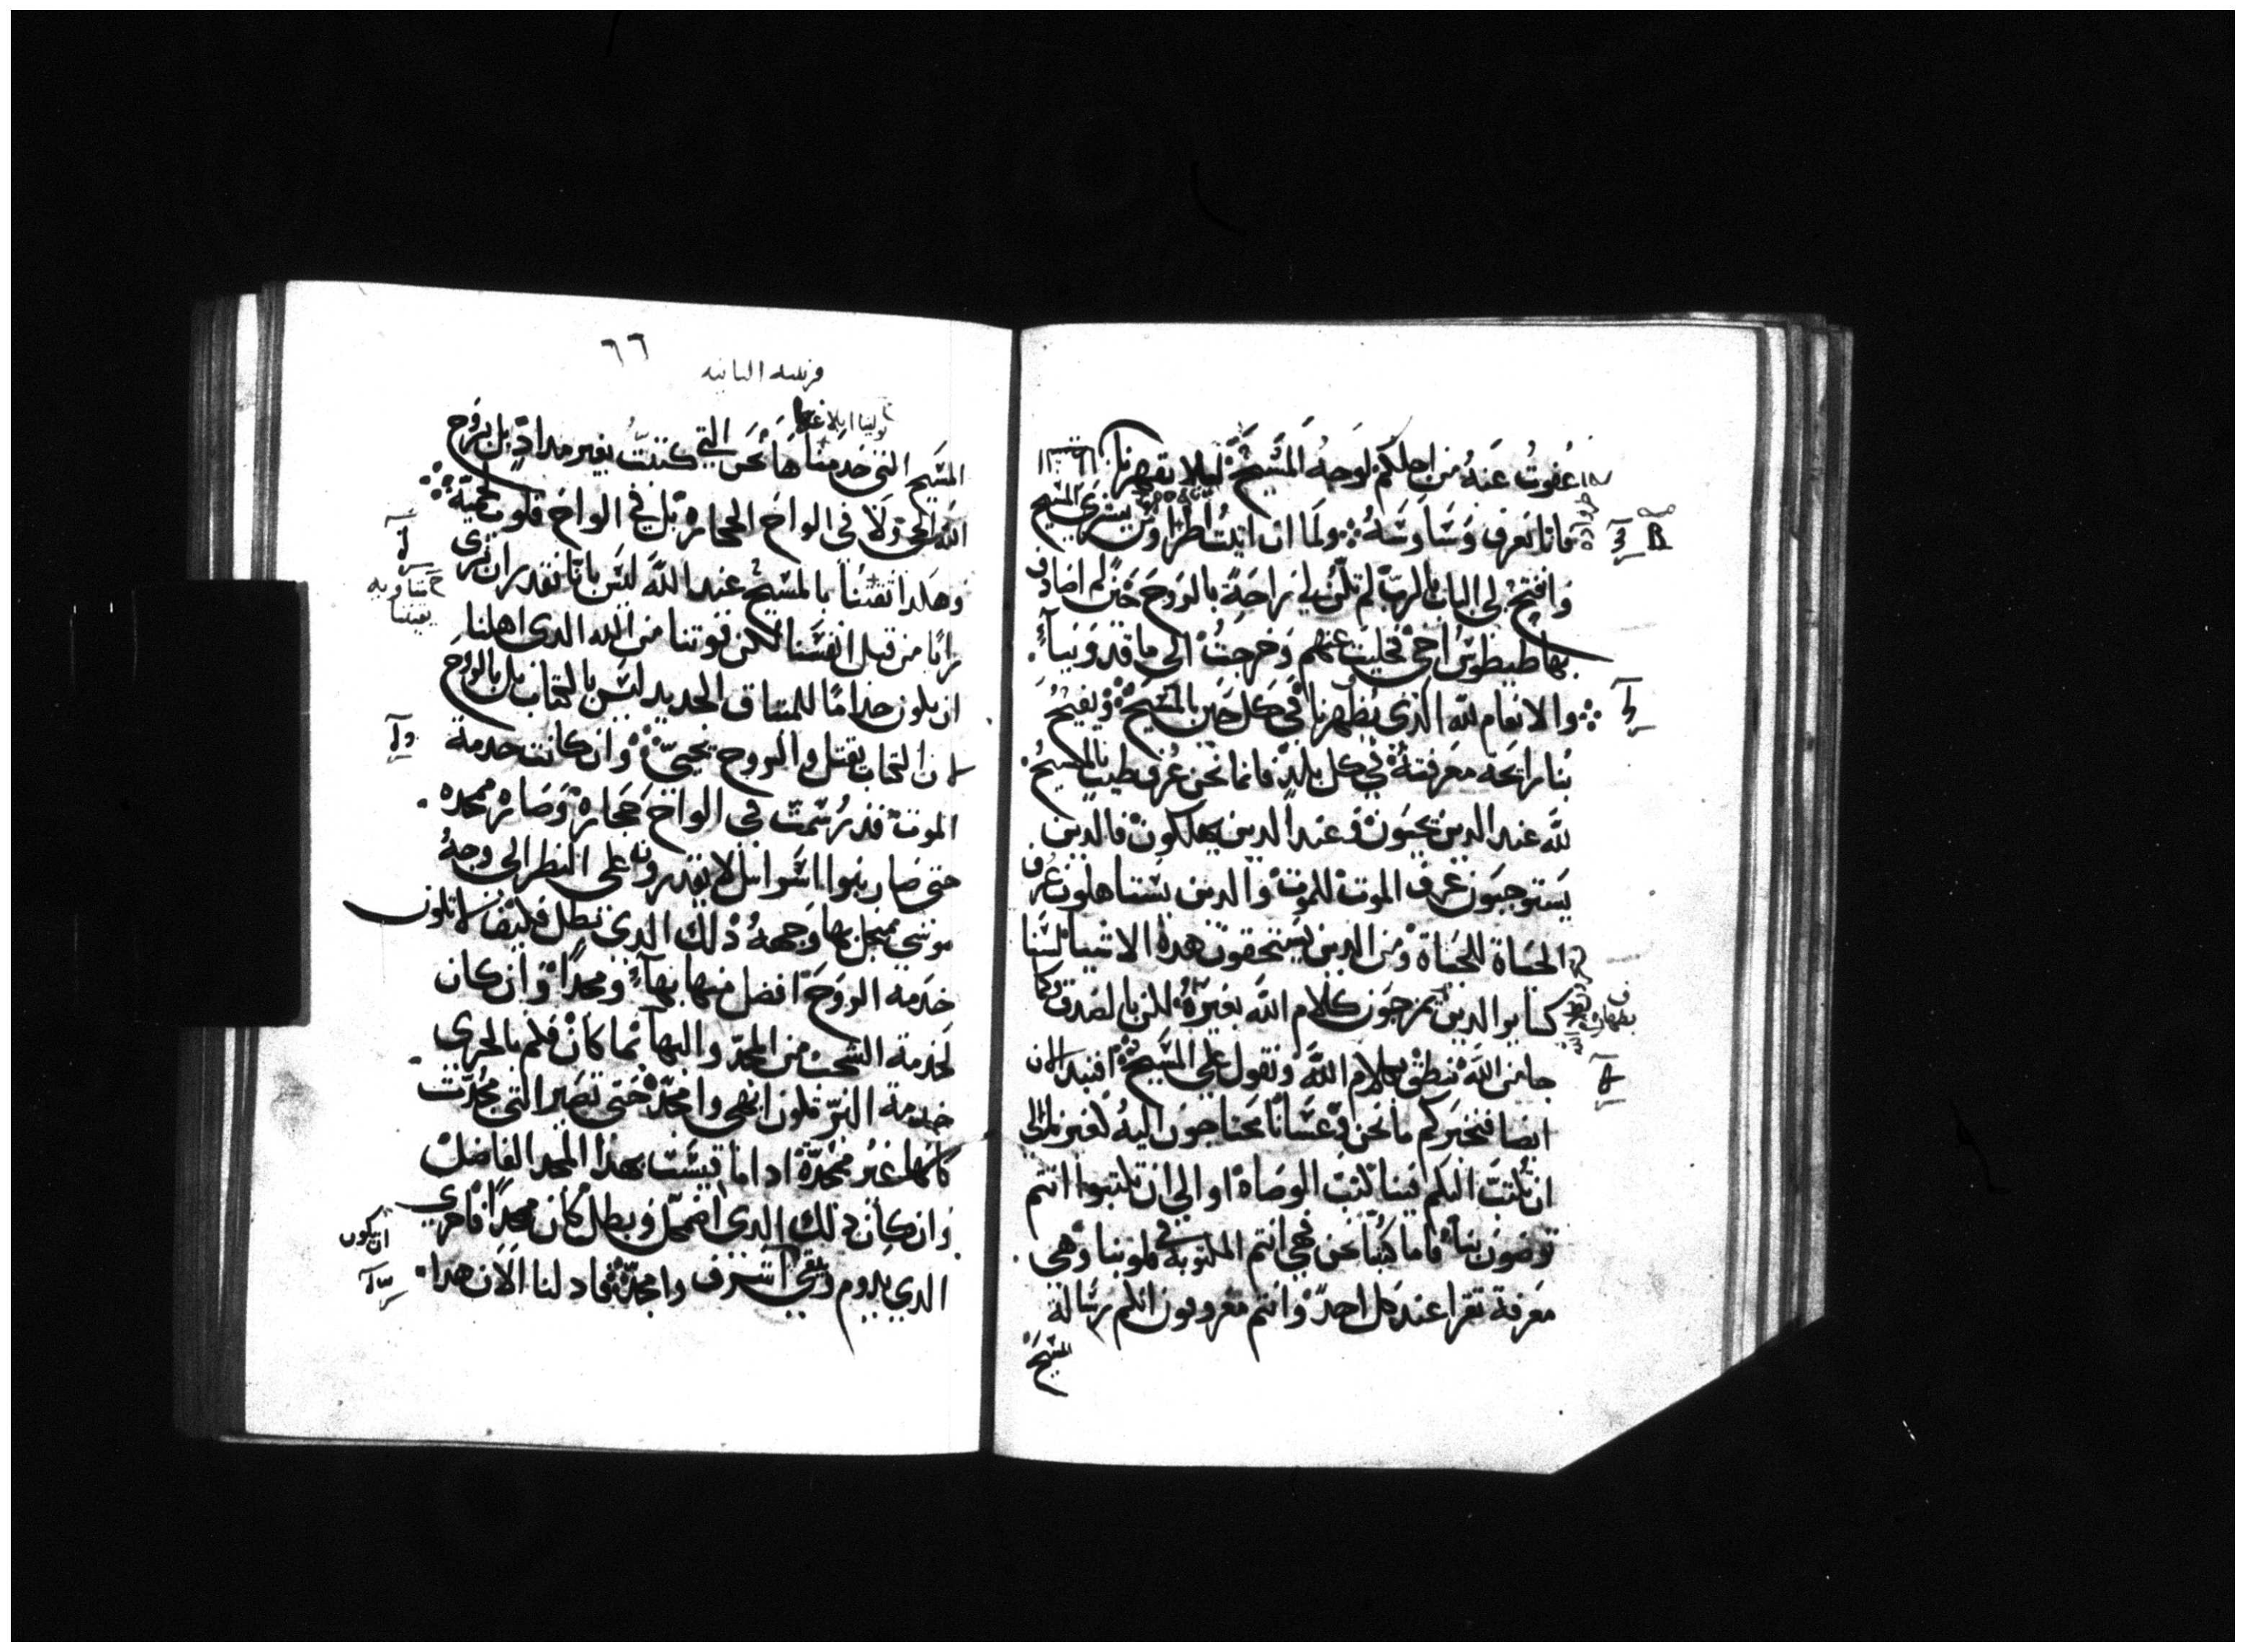 عفوت عنه من اجلكم لوجه المسيح ليلا يقهرنا
فانا نعرف وساوسه ولما ان اتيت اطراوس ببشرى المسيح
وافتح لي الباب بالرب لم تكن لي راحة بالروح حين لم اصادف
بها طيطوس اخي فخليت عنهم وخرجت الى ماقدونيا
والانعام لله الذي يظهرنا في كل حين بالمسيح ويفيح
بنا رايحة معرفته في كل بلد فانما نحن عرف طيب بالمسيح
لله عند الدين يحيون وعند الدين يهلكون فالدين
يستوجبون عرف الموت للموت والدين يستاهلون عرف
الحياة للحياة ومن الدين يستحقون هده الاشيا لسنا
كساير الدين يمزجون كلام الله بغيره لكن بالصدق وكما
من الله ننطق بكلام الله ونقول على المسيح افنبد الان
ايضا فنخبركم ما نحن وعسانا محتاجون اليه كغيرنا الى
ان تكتب اليكم فينا كتب الوصاه او الى ان تكتبوا انتم
توصون بنا فاما كتبنا نحن فهي انتم المكتوبة في قلوبنا وهي
معرفة تقرا عند كل احد وانتم معروفون انكم رسالة
المسيح
٦٦
قرنتيه التانيه
المسيح التي خدمناها نحن التي كتبت بغير مداد بل بروح
الله الحي ولا في الواح الحجارة بل في الواح قلوب لحمية
وهكدا تقتنا بالمسيح عند الله ليس بانا نقدر ان نرى
رايا من قبل انفسنا لكن قوتنا من الله الدي اهلنا
ان نكون خداما للميتاق الجديد ليس بالكتاب بل بالروح
لان الكتاب يقتل والروح يحيي وان كانت خدمة
الموت قد رسمت في الواح حجارة وصارة ممجده
حتى صار بنوا اسرايل لا يقدرون على النظر الى وجه
موسى من اجل بها وجهه دلك الدي بطل فكيف لا تكون
خدمة الروح افضل منها بهآ ومجدا وان كان
لخدمة الشجب من المجد والبهآ ما كان فكم بالحرى
خدمة البر تكون ابهى وامجد حتى تصير التي مجدت
كانها غير ممجدة ادا ما قيست بهدا المجد الفاضل
وان كان دلك الدي اضمحل وبطل كان مجدا فاحرى
ان يكون
الدي يدوم ويبقى اشرف وامجد فاد لنا الان هدا